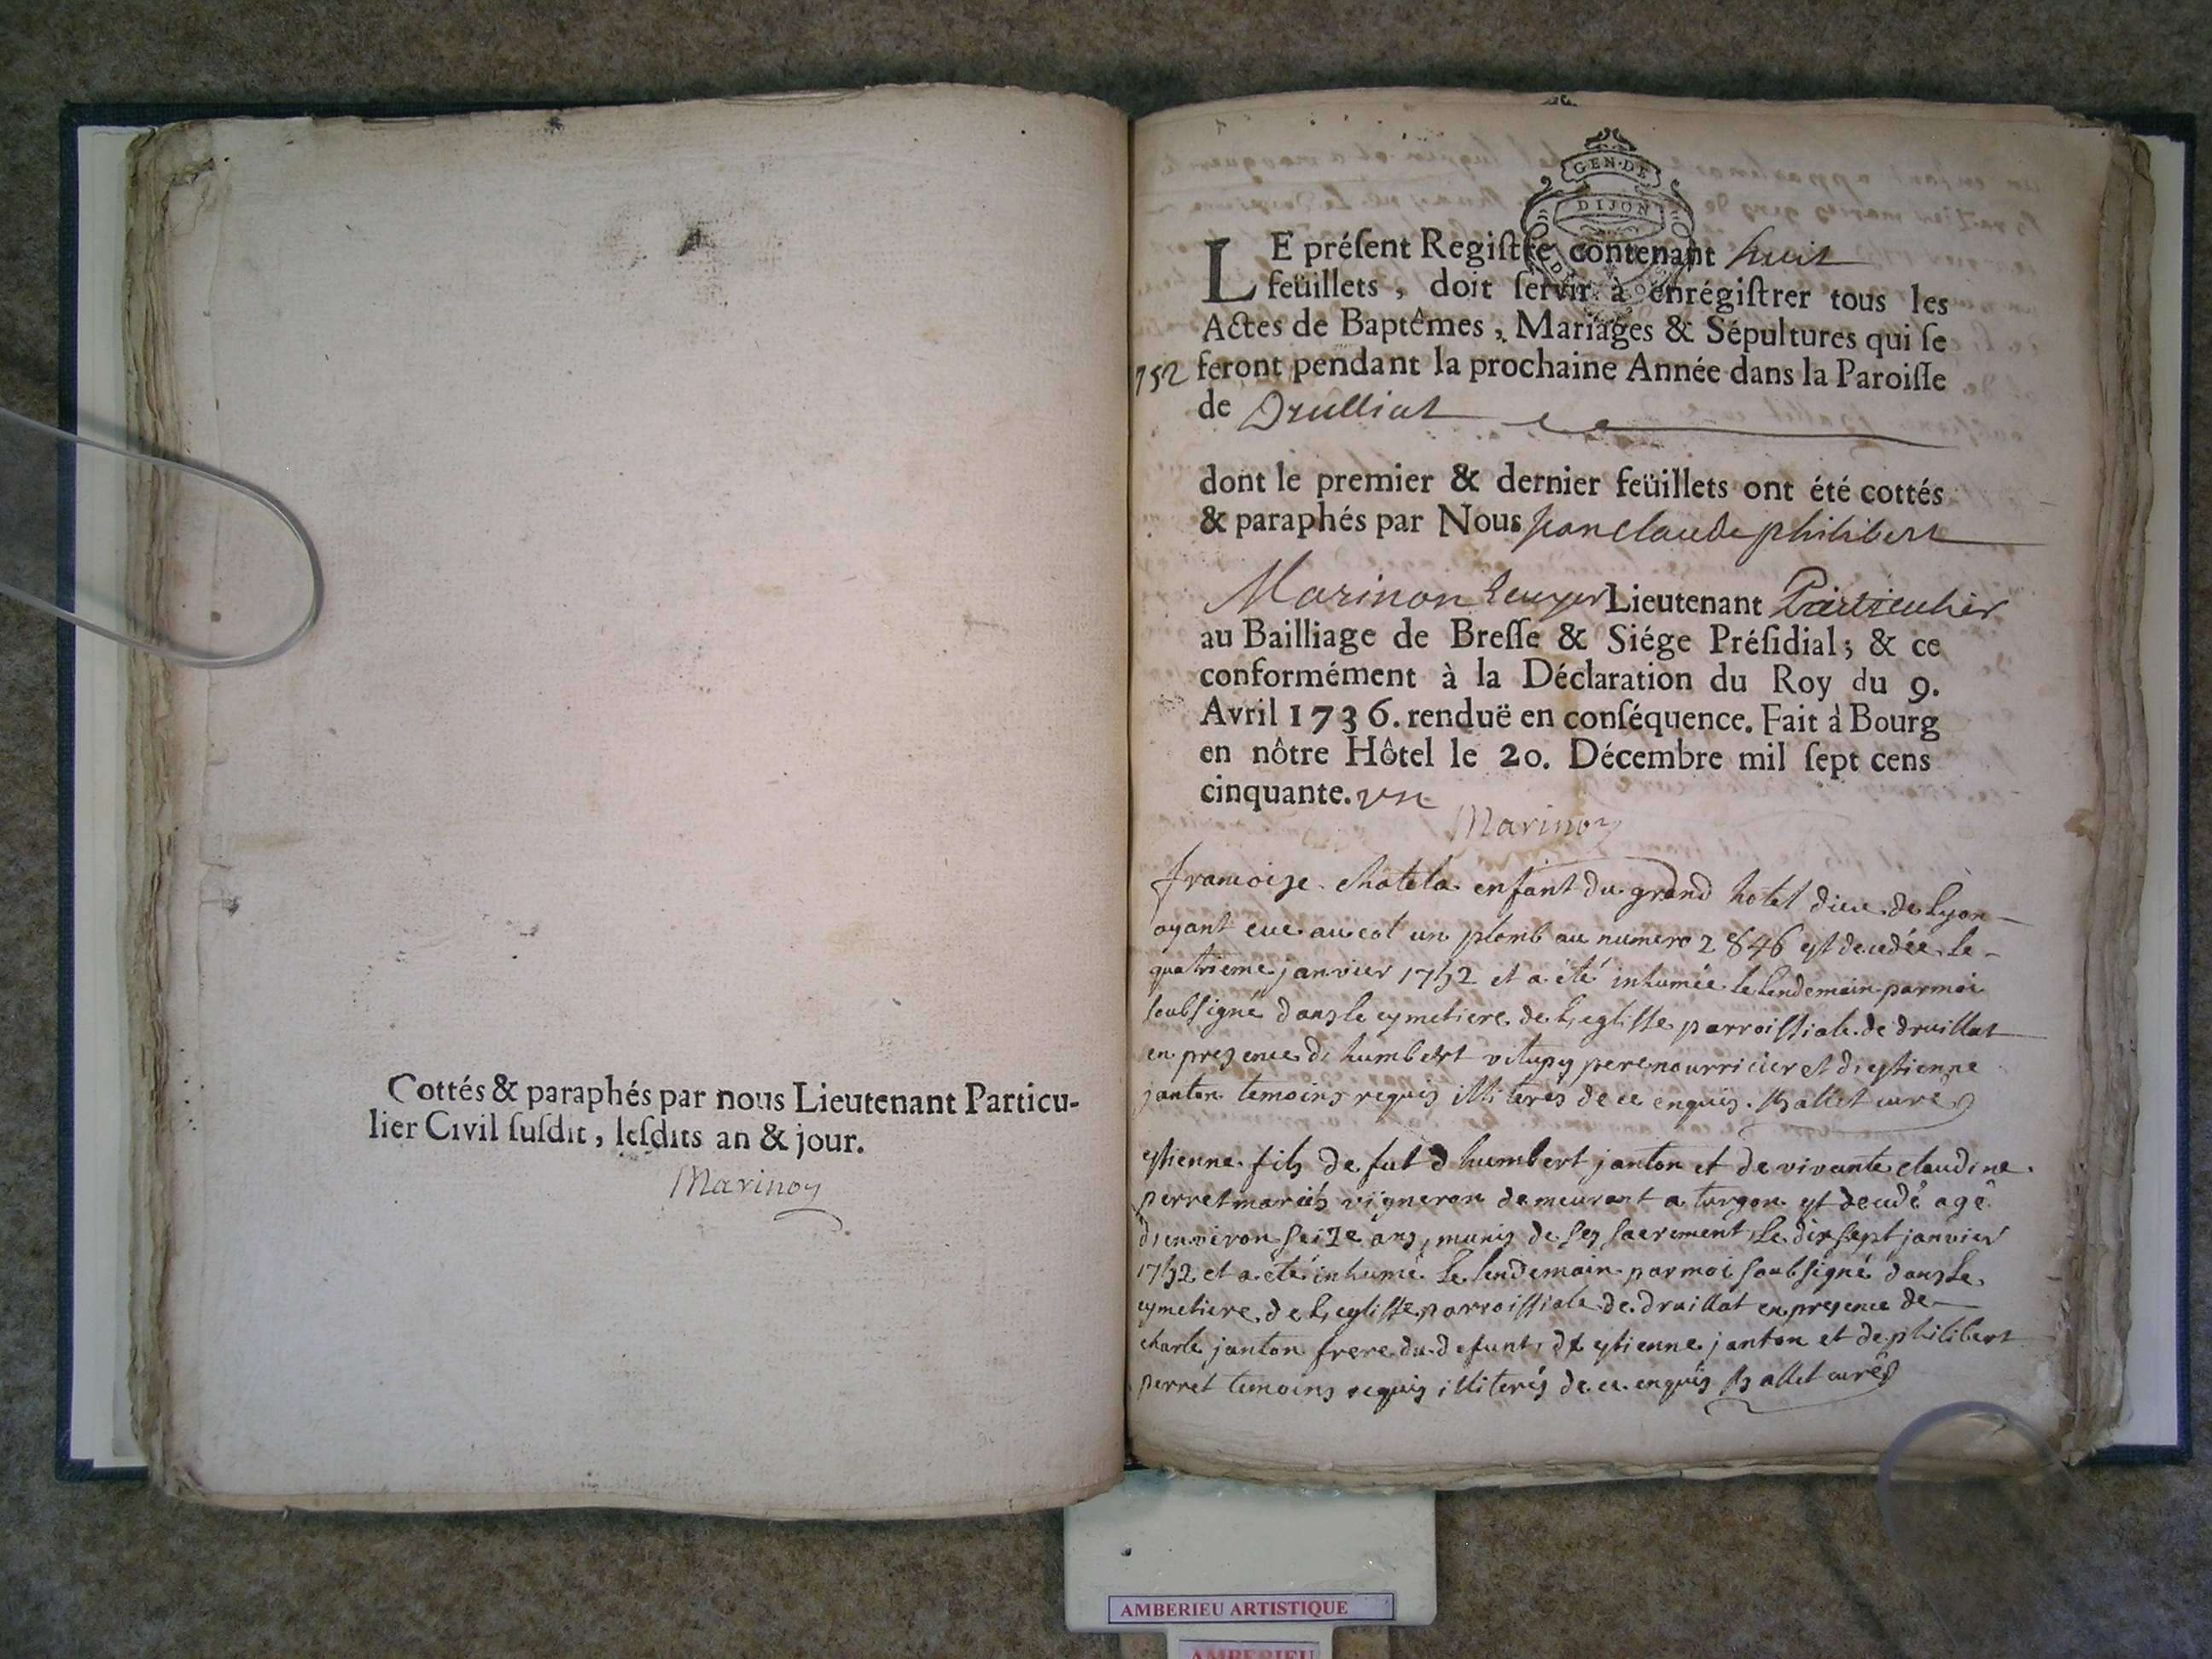 Cottés & paraphés par nous Lieutenant Particu-
lier Civil ſuſdit, leſdits an & jour.
Marinon
GEN·DE
DIJON
LE préſent Regiſtre contenant huit
feüillets, doit ſervir à enrégiſtrer tous les
Actes de Baptêmes, Mariages & Sépultures qui ſe
1752 feront pendant la prochaine Année dans la Paroiſſe
de Drulliat
dont le premier & dernier feüillets ont été cottés
& paraphés par Nous jean claude philibert
Marinon Lieutenant Particulier
au Bailliage de Breſſe & Siége Préſidial; & ce
conformément à la Déclaration du Roy du 9.
Avril 1736. renduë en conſéquence. Fait à Bourg
en nôtre Hôtel le 20. Décembre mil ſept cens
cinquante. un
Marinon
francoise chatela enfant du grand hotel dieu de Lyon
ayant eue au col un plomb au numero 2846 est decedée le
quatrieme janvier 1752 et a été inhumée le lendemain par moi
soubsigné dans le cymetiere de L'eglisse parroissiale de druillat
en presence de humbert pere nourricier et d'estienne
janton temoins requis illiteres de ce enquis. Ballet curé
estienne fils de fut d humbert janton et de vivante claudine
perret mariés vigneron demeurant a turgon est decedé agé
d'environ seize ans, munis de ses sacrement, le dix sept janvier
1752 et a été inhumé le lendemain par moi soubsigné dans le
cymetiere de L'eglisse parroissiale de druillat en presence de
charle janton frere du defunt, d'estienne janton et de philibert
perret temoins requis illiterés de ce enquis Ballet curé
AMBERIEU ARTISTIQUE
AMBERIEU